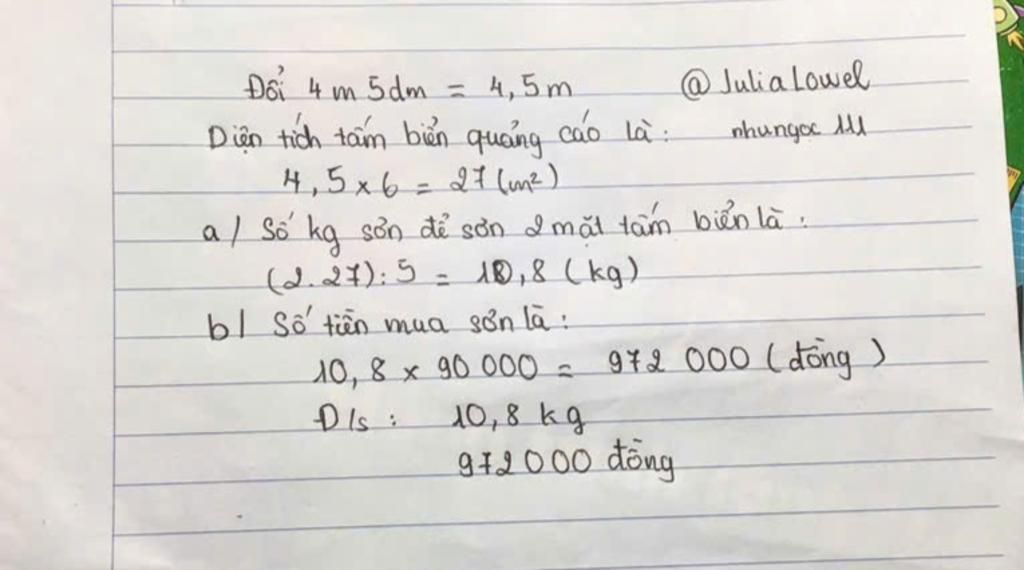 Đổi 4m 5dm = 4,5m @JuliaLowel
Diện tích tấm biển quảng cáo là: nhungoc 111
4,5 x 6 = 27 (m²)
a/ Số kg sơn để sơn 2 mặt tấm biển là:
(2.27):5 = 10,8 (kg)
b/ Số tiền mua sơn là:
10,8 x 90 000 = 972 000 (đồng)
Đ/s: 10,8 kg
972000 đồng